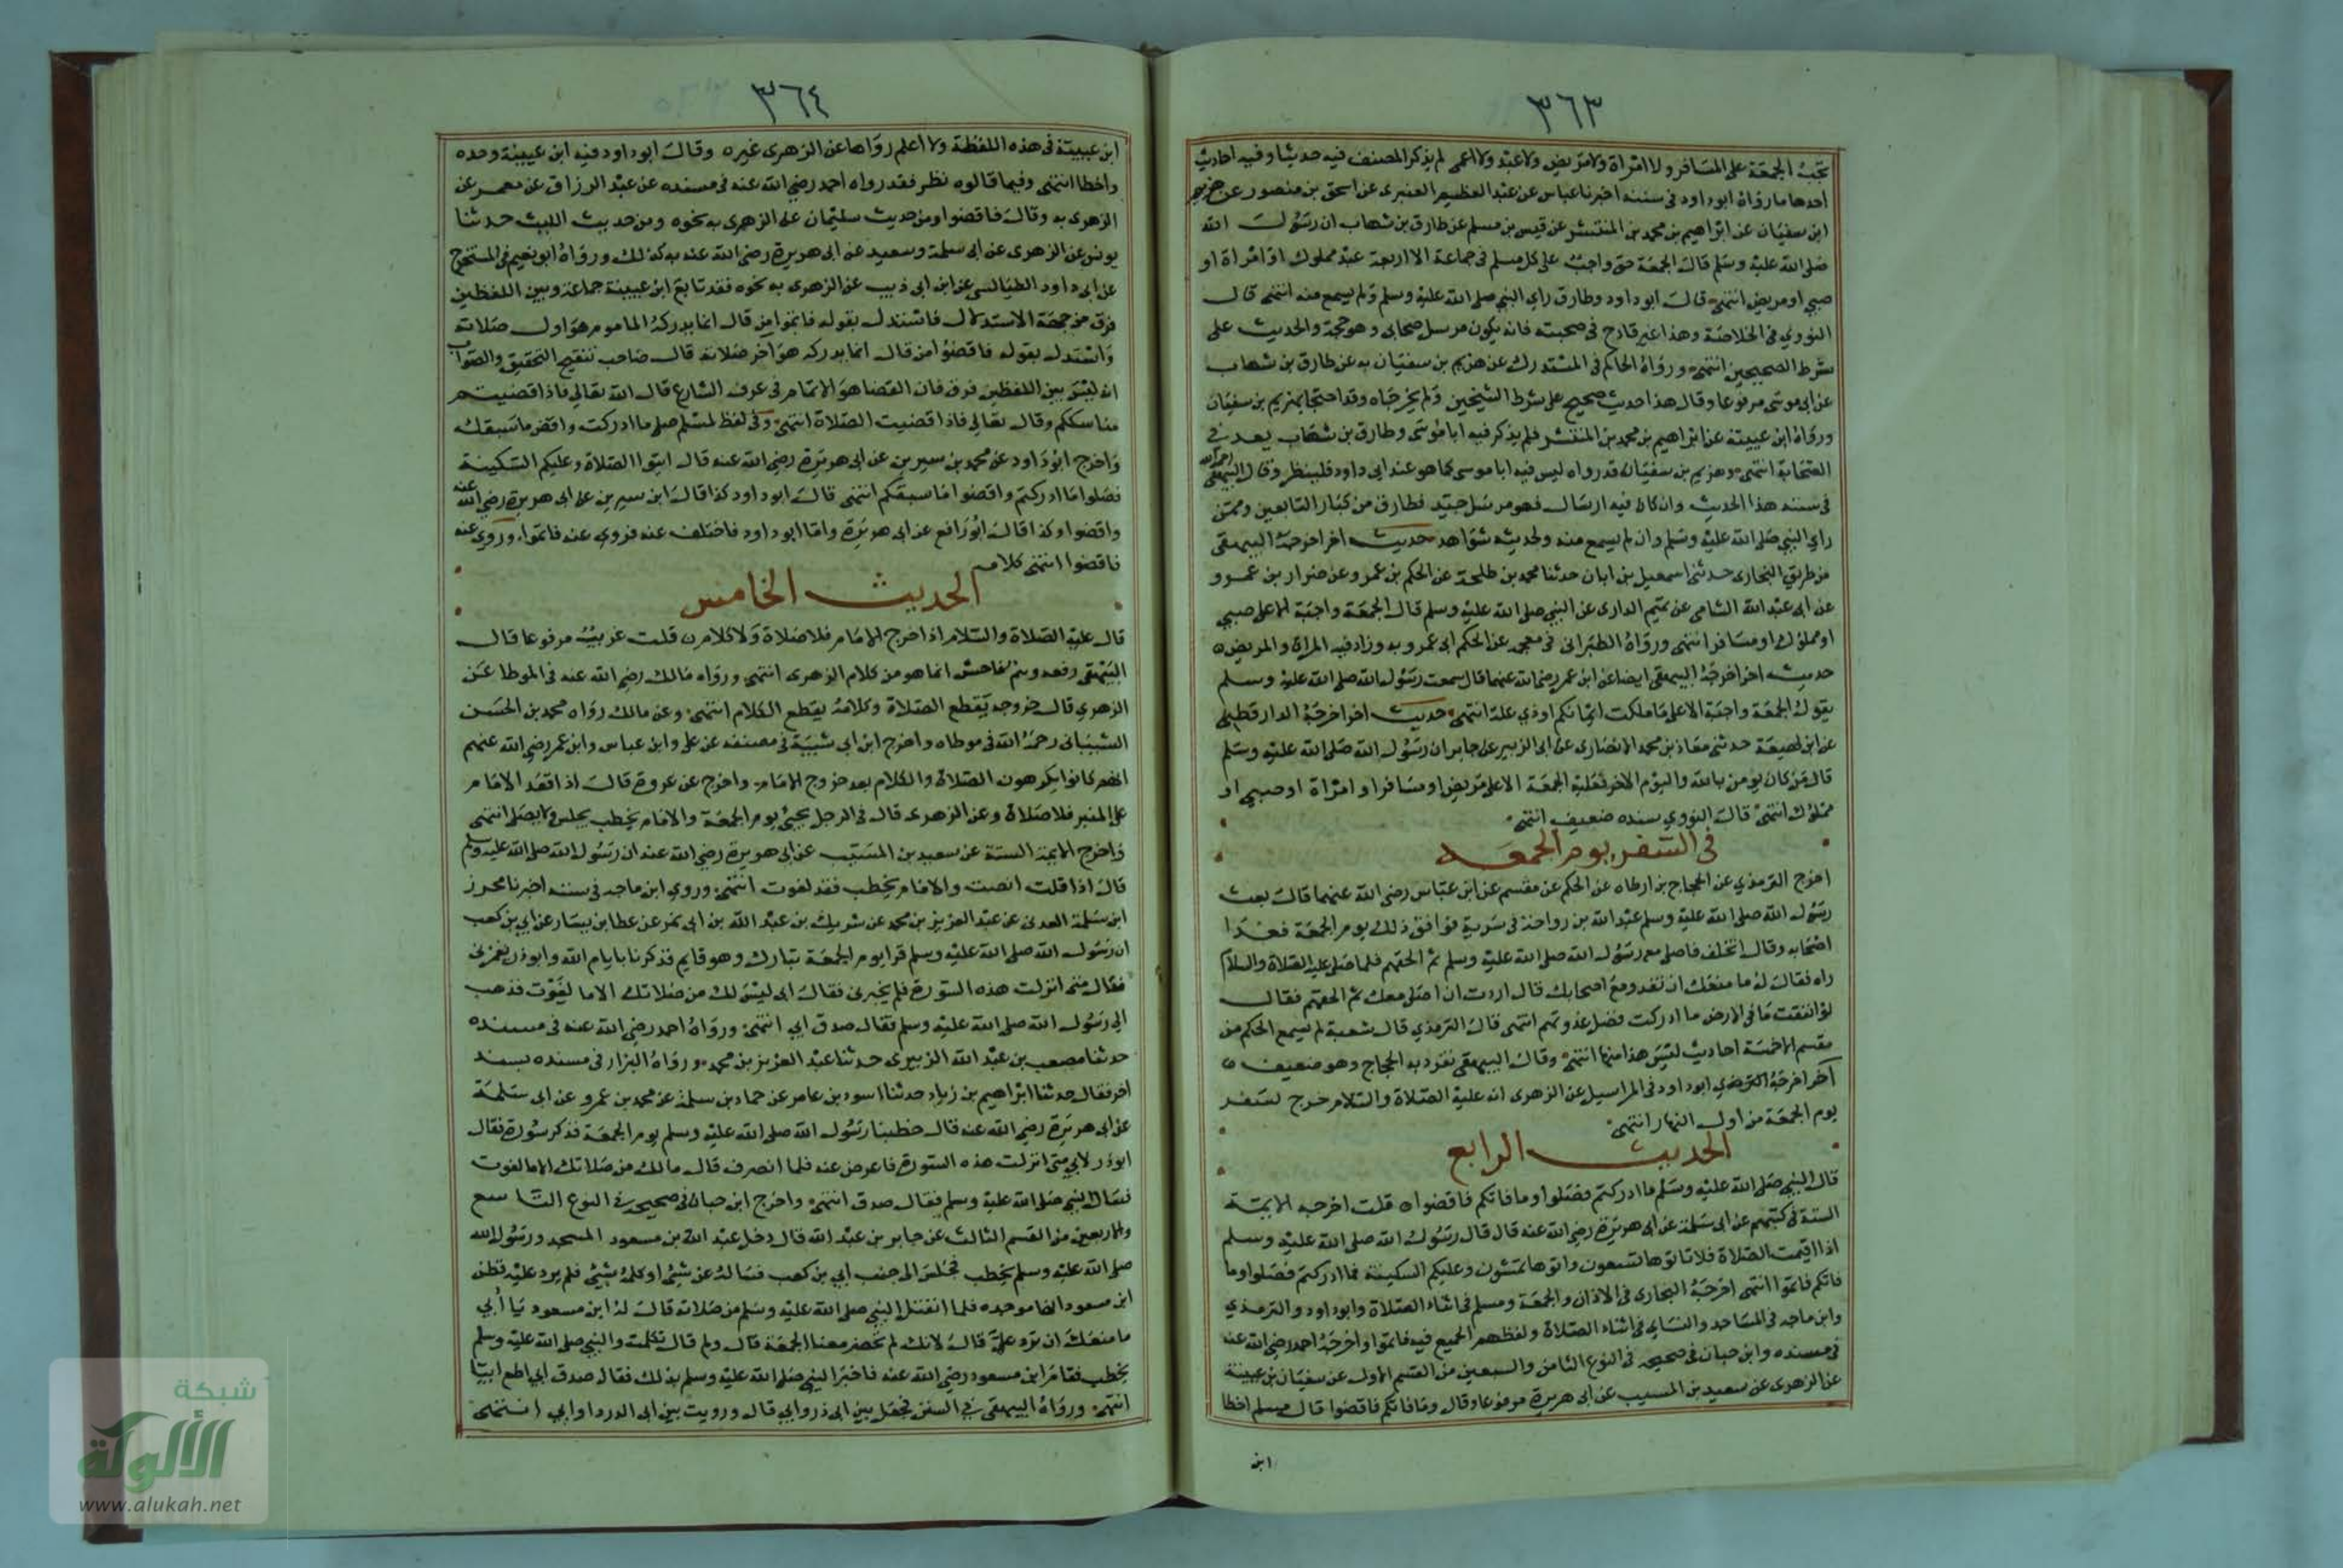 ٣٦٣
تجب الجمعة على المسافر ولا امراة ولا مريض ولا عبد ولا اعمى لم يذكر المصنف فيه حديثا وفيه احاديث
احدها ما رواه ابو داود في سننه اخبرنا عباس عن عبد العظيم العنبري عن اسحق بن منصور عن هريم
ابن سفيان عن ابراهيم بن محمد بن المنتشر عن قيس بن مسلم عن طارق بن شهاب ان رسول الله
صلى الله عليه وسلم قال الجمعة حق واجب على كل مسلم في جماعة الا اربعة عبد مملوك او امراة او
صبي او مريض انتهى قال ابو داود وطارق راي النبي صلى الله عليه وسلم ولم يسمع منه انتهى قال
النووي في الخلاصة وهذا غير قادح في صحبته فانه يكون مرسل صحابي وهو حجة والحديث على
شرط الصحيحين انتهى ورواه الحاكم في المستدرك عن هريم بن سفيان به عن طارق بن شهاب
عن ابي موسى مرفوعا وقال هذا حديث صحيح على شرط الشيخين ولم يخرجاه وقد احتجا بهريم بن سفيان
ورواه ابن عيينة عن ابراهيم بن محمد بن المنتشر فلم يذكر فيه ابا موسى وطارق بن شهاب يعد في
الصحابة انتهى وهريم بن سفيان قد رواه ليس فيه ابا موسى كما هو عند ابي داود فلينظر وقال البيهقي رحمه الله
في سننه هذا الحديث وان كان فيه ارسال فهو مرسل جيد فطارق من كبار التابعين وممن
راي النبي صلى الله عليه وسلم وان لم يسمع منه ولحديثه شواهد حديث اخر اخرجه البيهقي
من طريق البخاري حدثني اسمعيل بن ابان حدثنا محمد بن طلحة عن الحكم بن عمرو عن ضرار بن عمرو
عن ابي عبد الله الشامي عن تميم الداري عن النبي صلى الله عليه وسلم قال الجمعة واجبة الا على صبي
او مملوك او مسافر انتهى ورواه الطبراني في معجمه عن الحكم ابي عمرو به وزاد فيه المراة والمريض
حديث اخر اخرجه البيهقي ايضا عن ابن عمر رضي الله عنهما قال سمعت رسول الله صلى الله عليه وسلم
يقول الجمعة واجبة الا على ما ملكت ايمانكم او ذي علة انتهى حديث اخر اخرجه الدارقطني
عن ابن لهيعة حدثني معاذ بن محمد الانصاري عن ابي الزبير عن جابر ان رسول الله صلى الله عليه وسلم
قال من كان يومن بالله واليوم الاخر فعليه الجمعة الا على مريض او مسافر او امراة او صبي او
مملوك انتهى قال النووي سنده ضعيف انتهى
في السفر يوم الجمعة
اخرج الترمذي عن الحجاج بن ارطاه عن الحكم عن مقسم عن ابن عباس رضي الله عنهما قال بعث
رسول الله صلى الله عليه وسلم عبد الله بن رواحة في سرية فوافق ذلك يوم الجمعة فغدا
اصحابه وقال اتخلف فاصلي مع رسول الله صلى الله عليه وسلم ثم الحقهم فلما صلى عليه الصلاة والسلام
راه فقال له ما منعك ان تغدو مع اصحابك قال اردت ان اصلي معك ثم الحقهم فقال
لو انفقت ما في الارض ما ادركت فضل غدوتهم انتهى قال الترمذي قال شعبة لم يسمع الحكم من
مقسم الا خمسة احاديث ليس هذا منها انتهى وقال البيهقي تفرد به الحجاج وهو ضعيف
اخر اخرجه ابو داود في المراسيل عن الزهري انه عليه الصلاة والسلام خرج لسفر
يوم الجمعة من اول النهار انتهى
الحديث الرابع
قال النبي صلى الله عليه وسلم ما ادركتم فصلوا وما فاتكم فاقضوا قلت اخرجه الايمة
الستة في كتبهم عن ابي سلمة عن ابي هريرة رضي الله عنه قال قال رسول الله صلى الله عليه وسلم
اذا اقيمت الصلاة فلا تاتوها تسعون واتوها تمشون وعليكم السكينة فما ادركتم فصلوا وما
فاتكم فاتموا انتهى اخرجه البخاري في الاذان والجمعة ومسلم في اثناء الصلاة وابو داود والترمذي
وابن ماجه في المساجد والنساي في اثناء الصلاة ولفظهم الجميع فيه فاتموا واخرجه احمد رضي الله عنه
في مسنده وابن حبان في صحيحه في النوع الثامن والسبعين من القسم الاول عن سفيان بن عيينة
عن الزهري عن سعيد بن المسيب عن ابي هريرة مرفوعا وقال وما فاتكم فاقضوا قال مسلم اخطا
ابن
٣٦٤
ابن عيينة في هذه اللفظة ولا اعلم رواها عن الزهري غيره وقال ابو داود فيه ابن عيينة وحده
واخطا انتهى وفيما قالوه نظر فقد رواه احمد رضي الله عنه في مسنده عن عبد الرزاق عن معمر عن
الزهري به وقال فاقضوا ومن حديث سليمان عن الزهري به نحوه ومن حديث الليث حدثنا
يونس عن الزهري عن ابي سلمة وسعيد عن ابي هريرة رضي الله عنه به كذلك ورواه ابو نعيم في المستخرج
عن ابي داود الطيالسي عن ابن ابي ذيب عن الزهري به نحوه فقد تابع ابن عيينة جماعة وبين اللفظين
فرق من جهة الاستدلال فاستدل بقوله فاتموا من قال انما يدركه الماموم هو اول صلاته
واستدل بقوله فاقضوا من قال انما يدركه هو اخر صلاته قال صاحب تنقيح التحقيق والصواب
انه ليس بين اللفظين فرق فان القضا هو الاتمام في عرف الشارع قال الله تعالى فاذا قضيتم
مناسككم وقال تعالى فاذا قضيت الصلاة انتهى وفي لفظ لمسلم صل ما ادركت واقض ما سبقك
واخرج ابو داود عن محمد بن سيرين عن ابي هريرة رضي الله عنه قال ايتوا الصلاة وعليكم السكينة
فصلوا ما ادركتم واقضوا ما سبقكم انتهى قال ابو داود كذا قال ابن سيرين عن ابي هريرة رضي الله عنه
واقضوا وكذا قال ابو رافع عن ابي هريرة واما ابو داود فاختلف عنه فروي عنه فاتموا وروي عنه
فاقضوا انتهى كلامه
الحديث الخامس
قال عليه الصلاة والسلام اذا خرج الامام فلا صلاة ولا كلام قلت غريب مرفوعا قال
البيهقي رفعه وهم فاحش انما هو من كلام الزهري انتهى ورواه مالك رضي الله عنه في الموطا عن
الزهري قال خروجه يقطع الصلاة وكلامه يقطع الكلام انتهى وعن مالك رواه محمد بن الحسن
الشيباني رحمه الله في موطاه واخرج ابن ابي شيبة في مصنفه عن علي وابن عباس وابن عمر رضي الله عنهم
انهم كانوا يكرهون الصلاة والكلام بعد خروج الامام واخرج عن عروة قال اذا قعد الامام
على المنبر فلا صلاة وعن الزهري قال في الرجل يجيئ يوم الجمعة والامام يخطب يجلس ولا يصلي انتهى
واخرج الايمة الستة عن سعيد بن المسيب عن ابي هريرة رضي الله عنه ان رسول الله صلى الله عليه وسلم
قال اذا قلت انصت والامام يخطب فقد لغوت انتهى وروي ابن ماجه في سننه اخبرنا محرز
ابن سلمة العدني عن عبد العزيز بن محمد عن شريك بن عبد الله بن ابي نمر عن عطا بن يسار عن ابي بن كعب
ان رسول الله صلى الله عليه وسلم قرا يوم الجمعة تبارك وهو قايم فذكرنا بايام الله وابو ذر يغمزني
فقال متى انزلت هذه السورة فلم يخبرني فقال ابي ليس لك من صلاتك الا ما لغوت فذهب
الي رسول الله صلى الله عليه وسلم فقال صدق ابي انتهى ورواه احمد رضي الله عنه في مسنده
حدثنا مصعب بن عبد الله الزبيري حدثنا عبد العزيز بن محمد ورواه البزار في مسنده بسند
اخر فقال حدثنا ابراهيم بن زياد حدثنا اسود بن عامر عن حماد بن سلمة عن محمد بن عمرو عن ابي سلمة
عن ابي هريرة رضي الله عنه قال خطبنا رسول الله صلى الله عليه وسلم يوم الجمعة فذكر سورة فقال
ابو ذر لابي متى انزلت هذه السورة فاعرض عنه فلما انصرف قال مالك من صلاتك الا ما لغوت
فسال النبي صلى الله عليه وسلم فقال صدق انتهى واخرج ابن حبان في صحيحه في النوع التاسع
والاربعين من القسم الثالث عن جابر بن عبد الله قال دخل عبد الله بن مسعود المسجد ورسول الله
صلى الله عليه وسلم يخطب فجلس الى جنب ابي بن كعب فساله عن شيئ او كلمه بشيئ فلم يرد عليه فظن
ابن مسعود انها موجده فلما انفتل النبي صلى الله عليه وسلم من صلاته قال له ابن مسعود يا أبي
ما منعك ان ترد علي قال لانك لم تحضر معنا الجمعة قال ولم قال تكلمت والنبي صلى الله عليه وسلم
يخطب فقام ابن مسعود رضي الله عنه فاخبر النبي صلى الله عليه وسلم بذلك فقال صدق ابي اطع ابيا
انتهى ورواه البيهقي في السنن فجعل بين ابي ذر وابي قال ورويت بين ابي الدردا وابي انتهى
شبكة
الألوكة
www.alukah.net